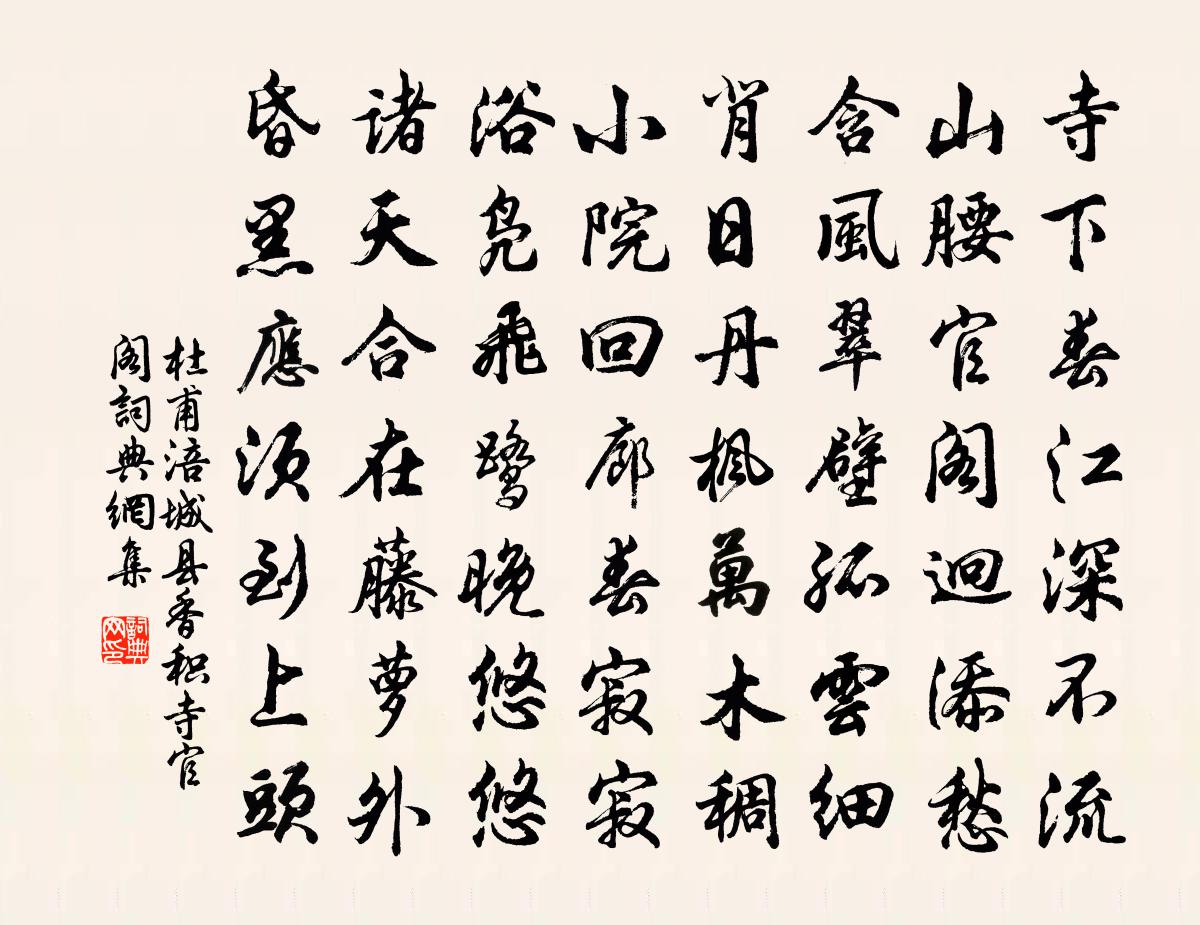 寺下春江深不流
山腰官阁迥添愁
含風翠壁孤雲细
背日丹枫萬木稠
小院回廊春寂寂
浴凫飛鹭晚悠悠
诸天合在藤萝外
昏黑應须到上頭
杜甫涪城县香积寺官
阁詞典網集
詞典
网印